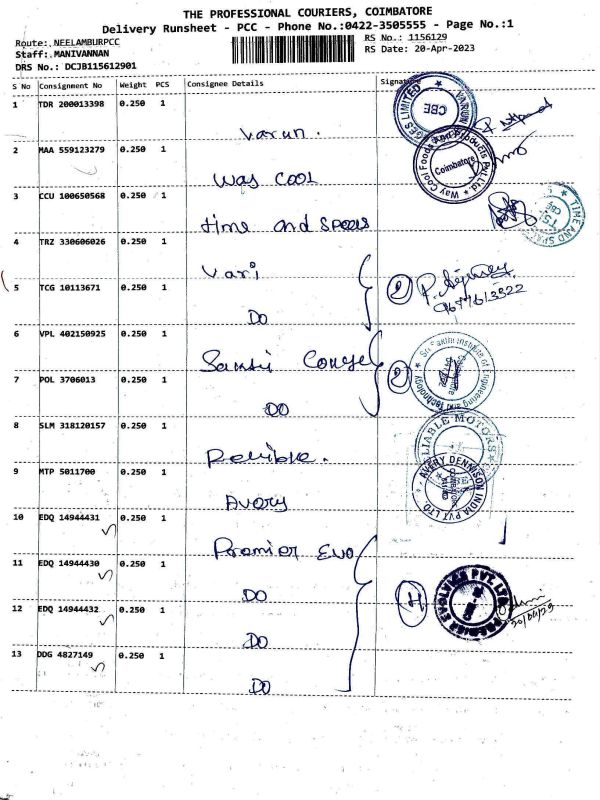 THE PROFESSIONAL COURIERS, COIMBATORE
Delivery Runsheet - PCC - Phone No.:0422-3505555 - Page No.:1
Route: NEELAMBURPCC RS No.: 1156129
Staff: MANIVANNAN RS Date: 20-Apr-2023
DRS No.: DCJB115612901
S No Consignment No Weight PCS Consignee Details Signature
1 TDR 200013398 0.250 1
Varun.
GES LIMITED ★ VARUN
CBE
2 MAA 559123279 0.250 1
Way COOL
Way Cool Foods And Products Pvt Ltd ★
Coimbatore
3 CCU 100650568 0.250 1
time and spaces
★ TIME AND SPA
CBE
4 TRZ 330606026 0.250 1
Vari
5 TCG 10113671 0.250 1
DO
2
6 VPL 402150925 0.250 1
Institute of Engineering and Technology ★
7 POL 3706013 0.250 1
DO
2
8 SLM 318120157 0.250 1
LIABLE MOTORS
9 MTP 5011700 0.250 1
Avery
AVERY DENNISON INDIA PVT LTD.
10 EDQ 14944431 0.250 1
Premier Evo
11 EDQ 14944430 0.250 1
DO
4
PREMIER EVOLVICS PVT. LTD.
20/04/23
12 EDQ 14944432 0.250 1
DO
13 DDG 4827149 0.250 1
DO